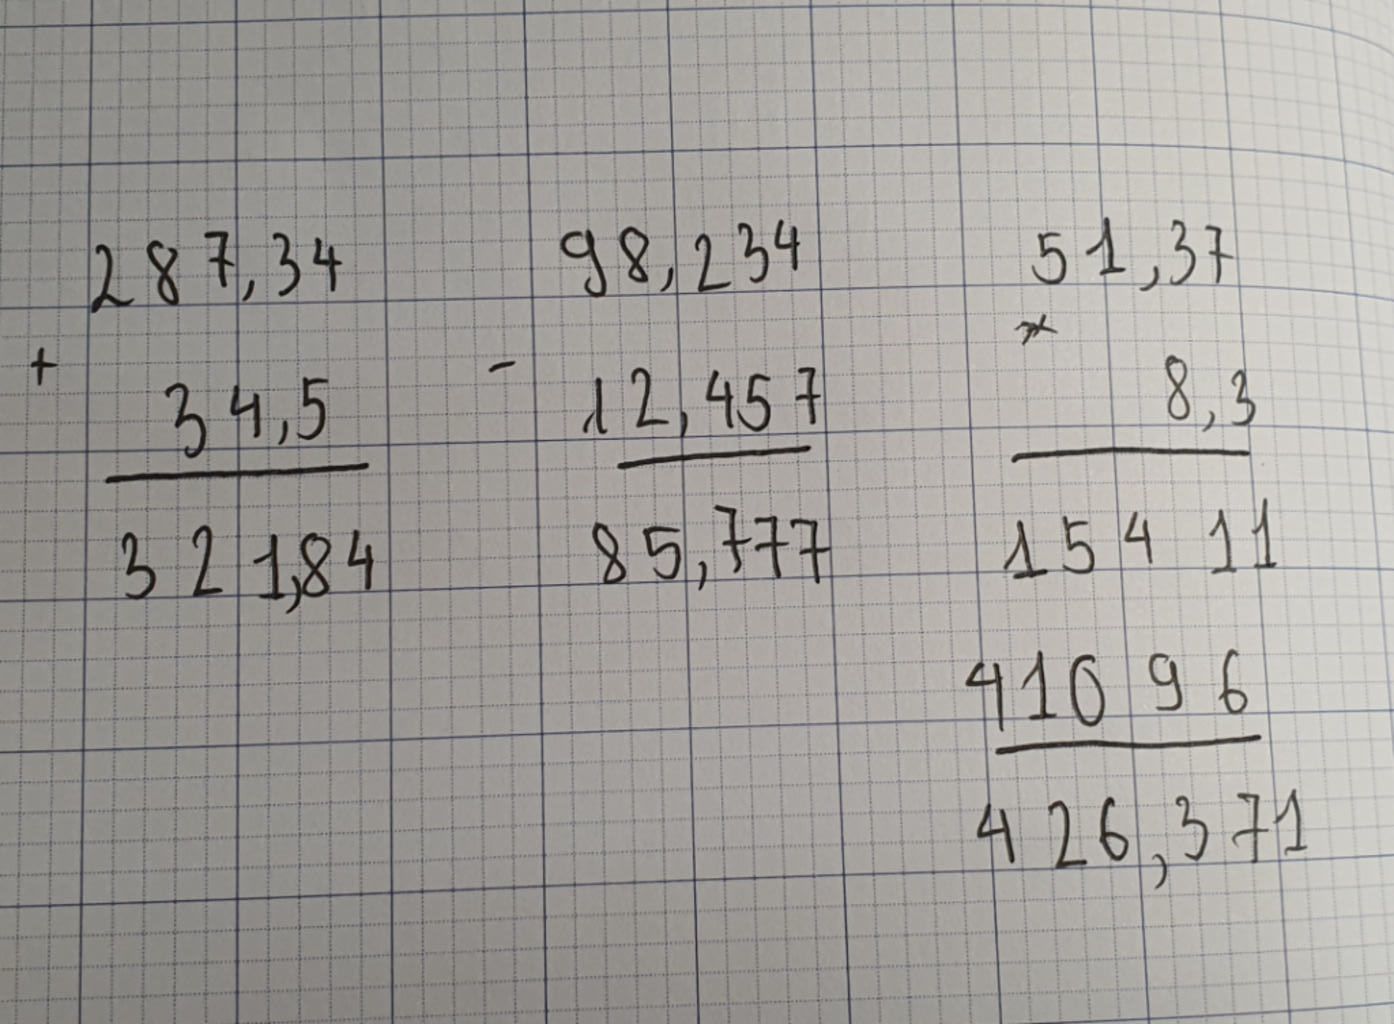 287,34
+
34,5
321,84
98,234
-
12,457
85,777
51,37
×
8,3
154 11
410 96
426,371